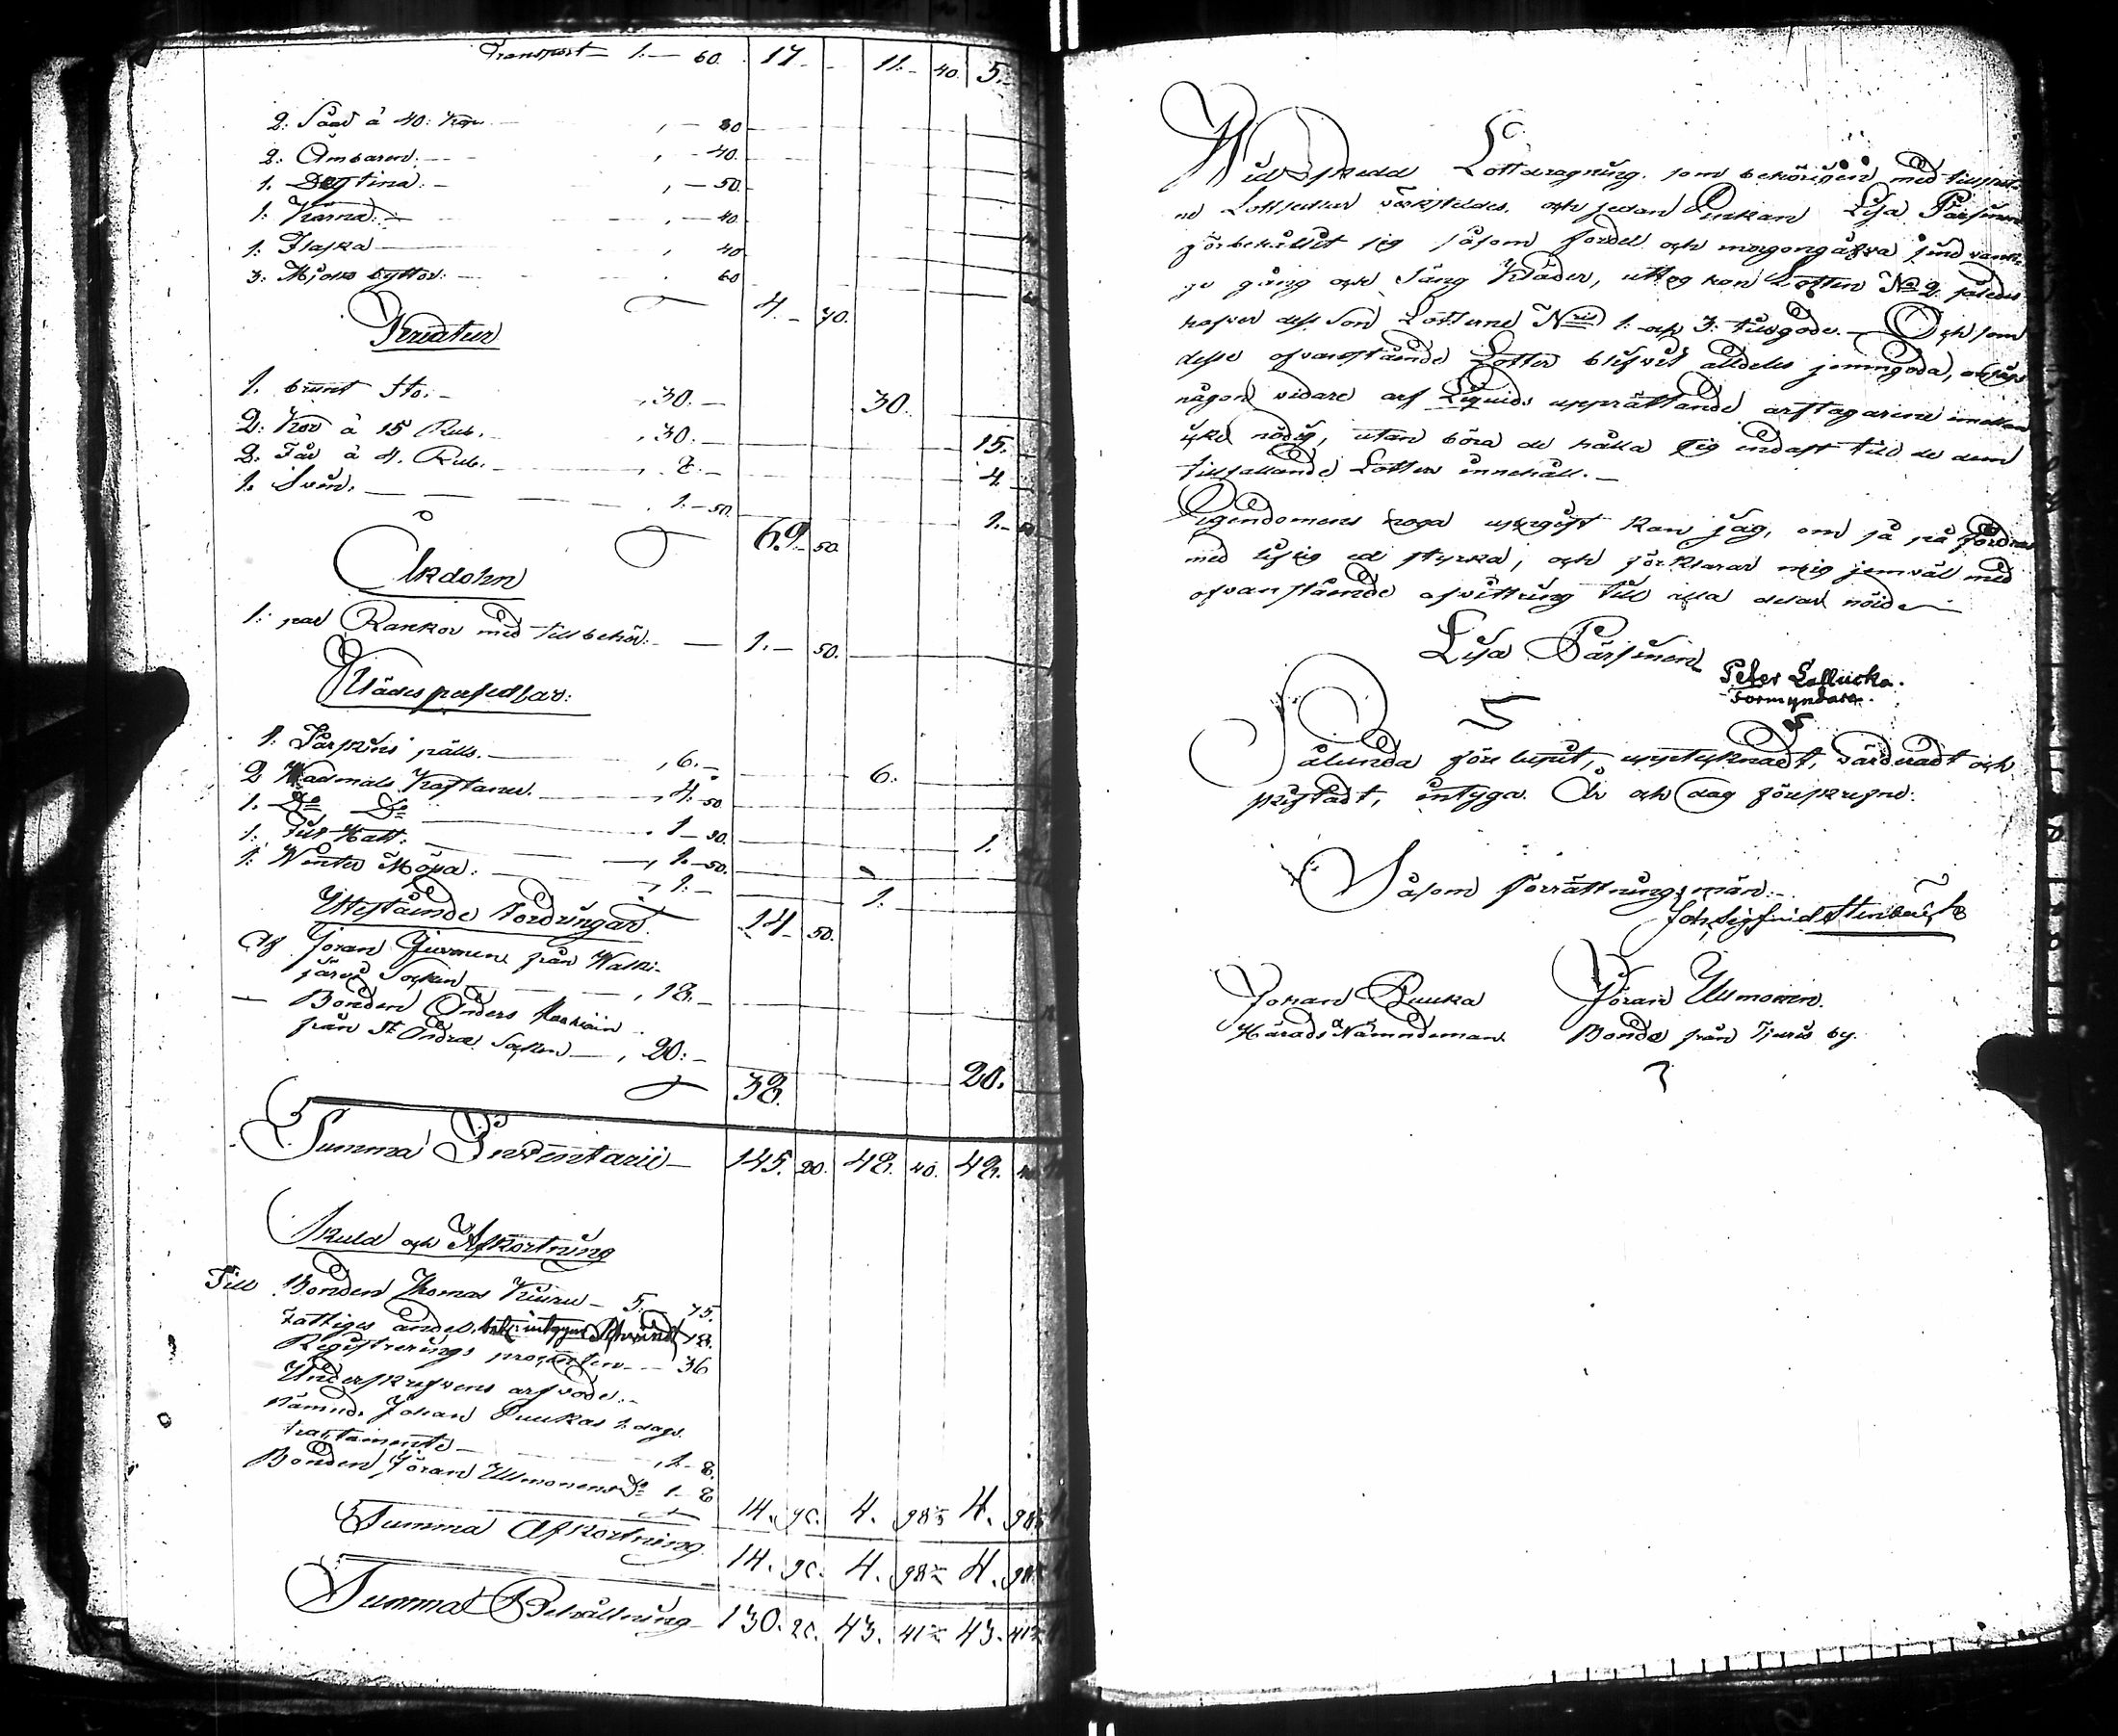 Transport 1.— 60. 17 – 11.– 40. 5.–
2: Sååd à 40: kop. , – 80
2: Ämbaren. , – 40.
1. Degtina. , – 50.
1: Kärna. , – 40
1: Flaska , 40
3: Mjölks byttor. 60
4.– 70.
Kreatur
1. brunt Sto. , 30.– 30.
2: Kor à 15 Rub. , 30.– 15.
2: Får à 4. Rub. , 8.– 4.
1. Svin. , 1.– 50. 1.– 50
69.– 50.
Åkdohn
1: par Kankor med tillbehör. 1.– 50.
Klädespersedlar:
1: Fårskins pälls. , 6.– 6.
2 Wadmals Kaftaner. , 4.– 50
1. Do Do , 1– 50. 1.
1: Filt Hatt. , 1.– 50.
1: Winter Mössa. , 1.– 1.
14– 50.
Utestående Fordringar.
Af Jöran från Walki-
järvi Sochn , 18.–
— Bonden Anders
från St Andreæ Sochn , 20.– 20.
38.
Summa Inventarii 145. 20. 48. 40. 48. 40
Skuld och Afkortning
Till Bonden Thomas Kiuru 5.– 75.
Fattiges andel 18.
Registrerings procenten 36
Underskrefvens arfvode.
Nämnd. Johan Puukas 1. dags
tractamente , 1– 8.
Bonden Jöran Ullmonens Do 1– 8
14. 90. 4. 98 4. 98
Summa Afkortning 14. 90. 4. 98 4. 98
Summa Behållning 130. 20. 43. 41 43. 41
Wid skedd Lottdragning, som behörigen med tillpräs-
ne Lottsedlar värkstäldes, och sedan Enkan Lisa Pärsinen
förbehållit sig såsom fördel och morgongåfva sine vank-
je gång och Säng Kläder, uttog hon Lotten No 2, således
hafver dess Son Lotterne Nris 1. och 3. till godo. — Och som
desse ofvanstående Lotter blifvit alldeles jemngoda, är
någon vidare arf Liquids upprättande arftagarene emellan
icke nödig, utan böra de hålla sig endast till de dem
tillfallande Lotters innehåll.—
Egendomens noga uppgift kan jag, om så på fordras
med lifzig ed styrka, och förklarar mig jemväl med
ofvanstående afvittring till alla delar nöjd—
Lisa Pärsinen
Peter Lallucka.
Formyndare.
Sålunda förelupit, upptecknadt, värderadt och
skiftadt, intyga. År och dag föreskrefne:
Såsom förrättningsmän.
Joh. Sigfrid Stenbäck
Johan Puuka
Härads Nämndeman
Jöran Ullmonen.
Bonde från Tiuris by.